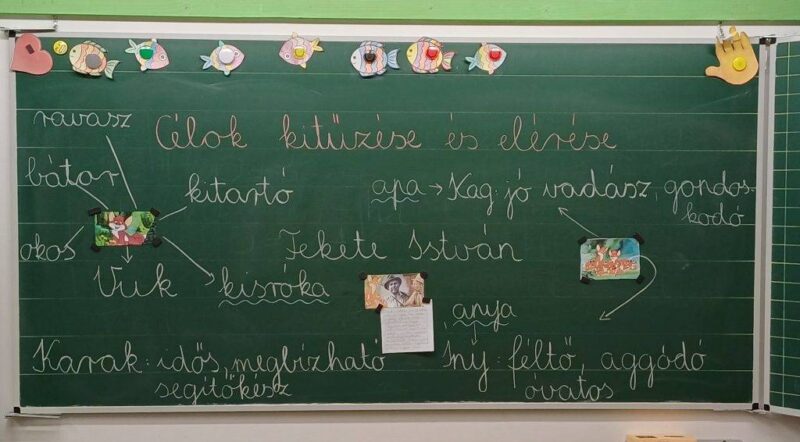 Célok kitűzése és elérése
ravasz
bátor
kitartó
okos
Vuk
kisróka
Fekete István
apa → Kag: jó vadász, gondos-
kodó
anya
Karak: idős, megbízható
segítőkész
Iny: féltő, aggódó
óvatos